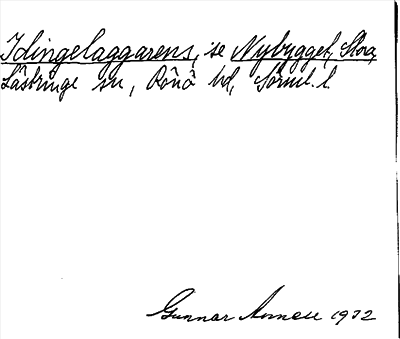 Idingelaggarens, se Nybygget, Stora,
Lästringe sn, Rönö hd, Sörml. l.
Gunnar 1932